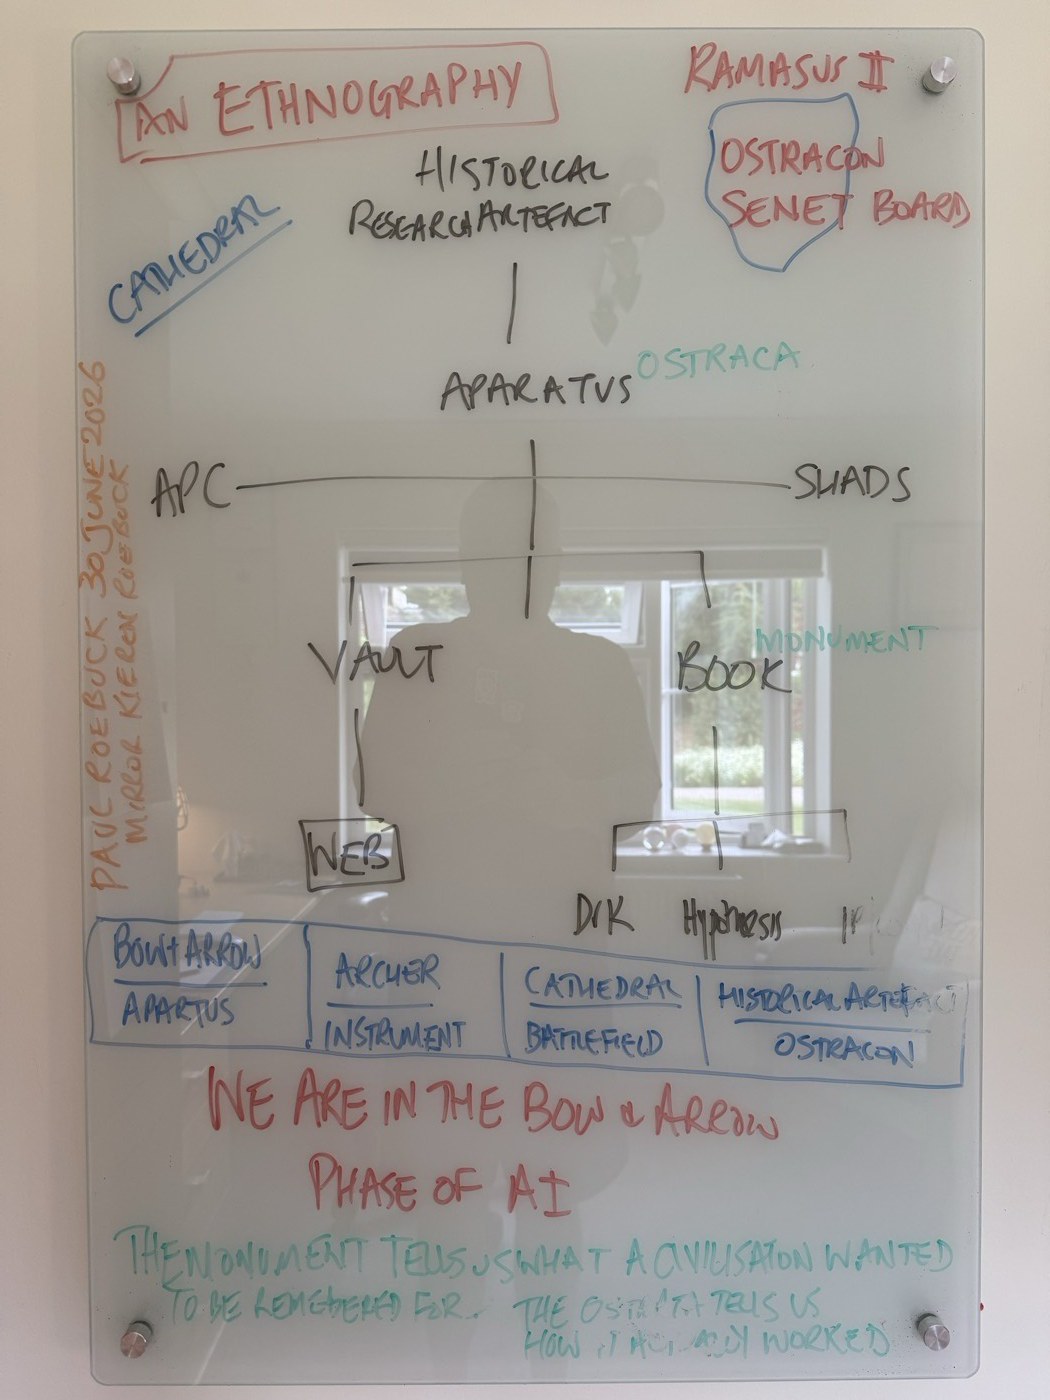 AN ETHNOGRAPHY
RAMASUS II
OSTRACON
SENET BOARD
HISTORICAL
RESEARCH ARTEFACT
CATHEDRAL
APARATUS
OSTRACA
APC
SHADS
PAUL ROEBUCK 30 JUNE 2026
MIRROR KIEREN ROEBUCK
VAULT
BOOK
MONUMENT
WEB
Hypothesis
BOW + ARROW
APARTUS
ARCHER
INSTRUMENT
CATHEDRAL
BATTLEFIELD
HISTORICAL ARTEFACT
OSTRACON
WE ARE IN THE BOW & ARROW
PHASE OF AI
THE MONUMENT TELLS US WHAT A CIVILISATION WANTED
TO BE REMEBERED FOR. THE TELLS US
HOW WORKED